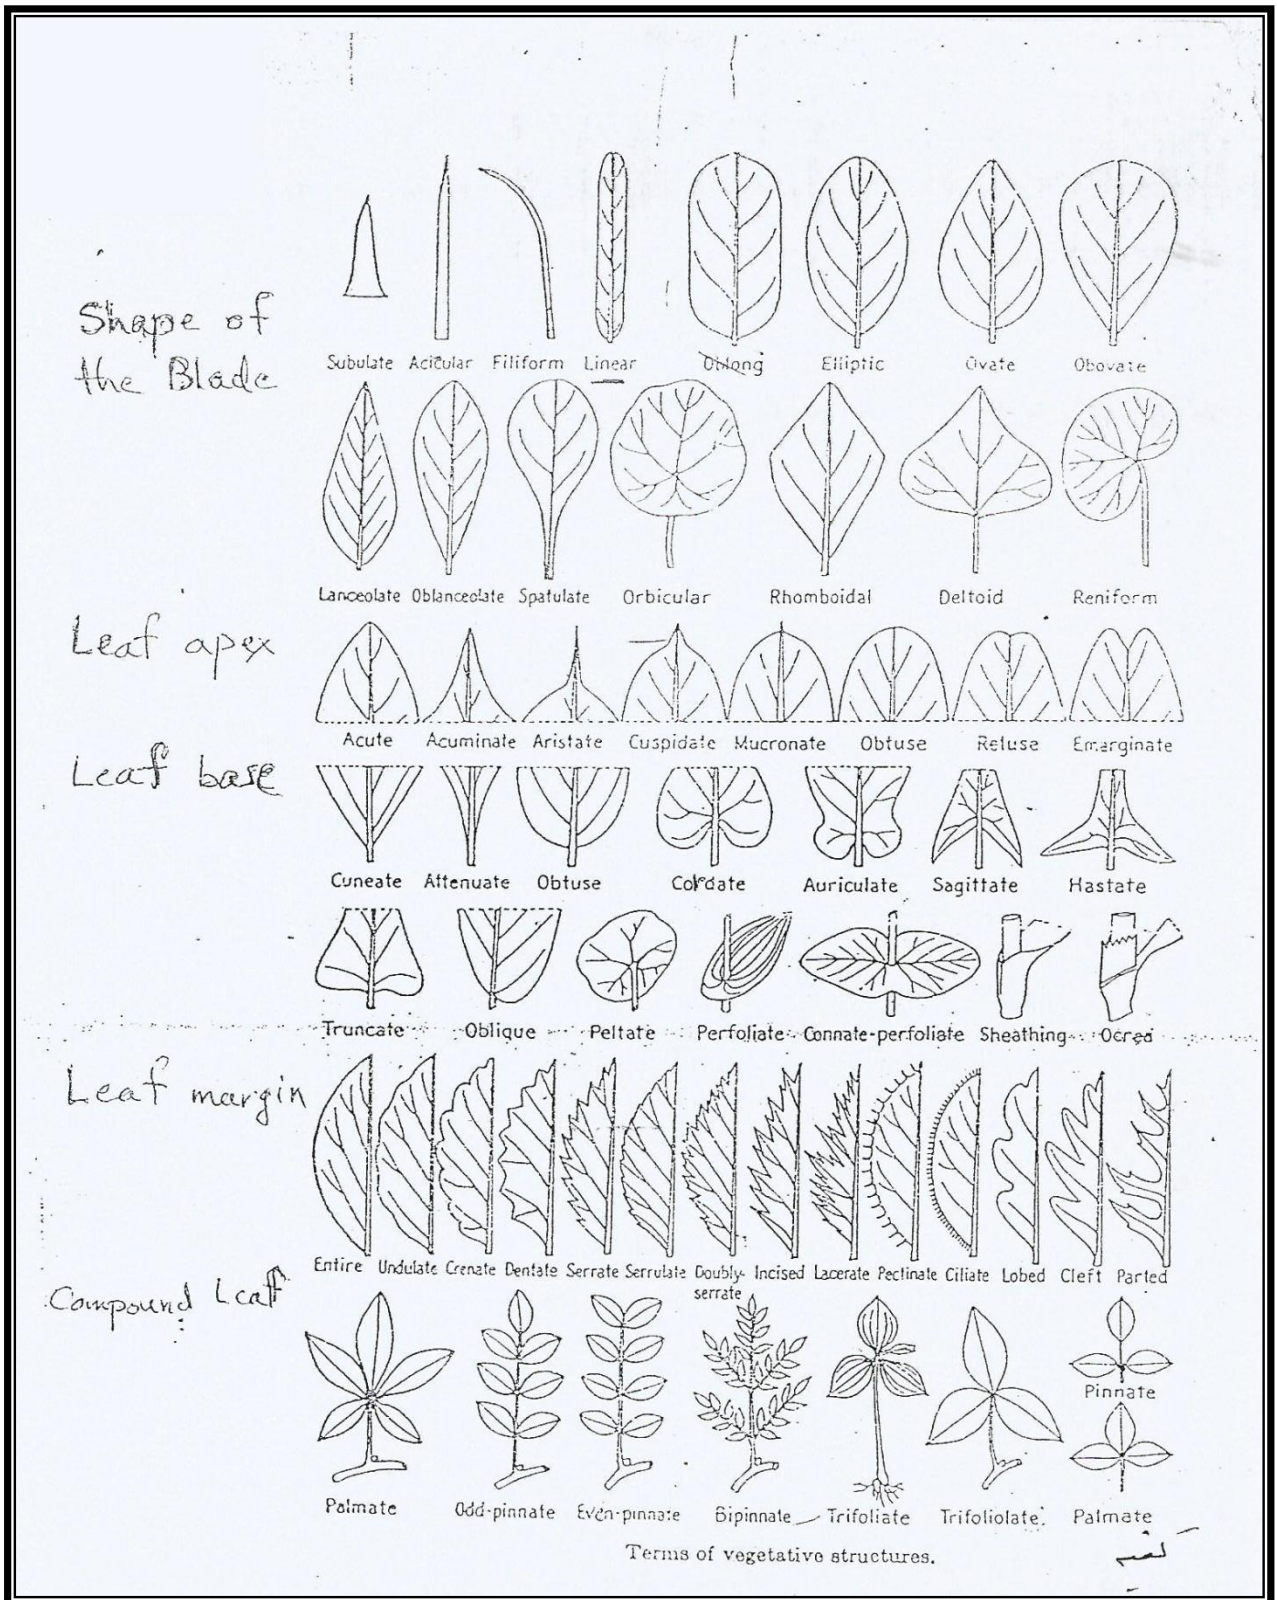 Shape of
the Blade
Subulate Acicular Filiform Linear Oblong Elliptic Ovate Obovate
Lanceolate Oblanceolate Spatulate Orbicular Rhomboidal Deltoid Reniform
Leaf apex
Acute Acuminate Aristate Cuspidate Mucronate Obtuse Retuse Emarginate
Leaf base
Cuneate Attenuate Obtuse Cordate Auriculate Sagittate Hastate
Truncate Oblique Peltate Perfoliate Connate-perfoliate Sheathing Ocrea
Leaf margin
Entire Undulate Crenate Dentate Serrate Serrulate Doubly- Incised Lacerate Pectinate Ciliate Lobed Cleft Parted
serrate
Compound Leaf
Pinnate
Palmate Odd-pinnate Even-pinnate Bipinnate Trifoliate Trifoliolate. Palmate
Terms of vegetative structures.